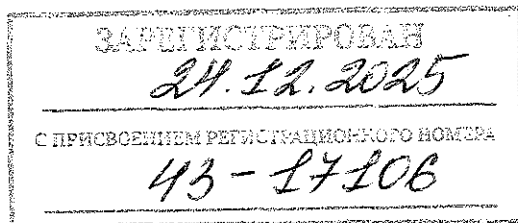 ЗАРЕГИСТРИРОВАН
24.12.2025
С ПРИСВОЕНИЕМ РЕГИСТРАЦИОННОГО НОМЕРА
43-17106